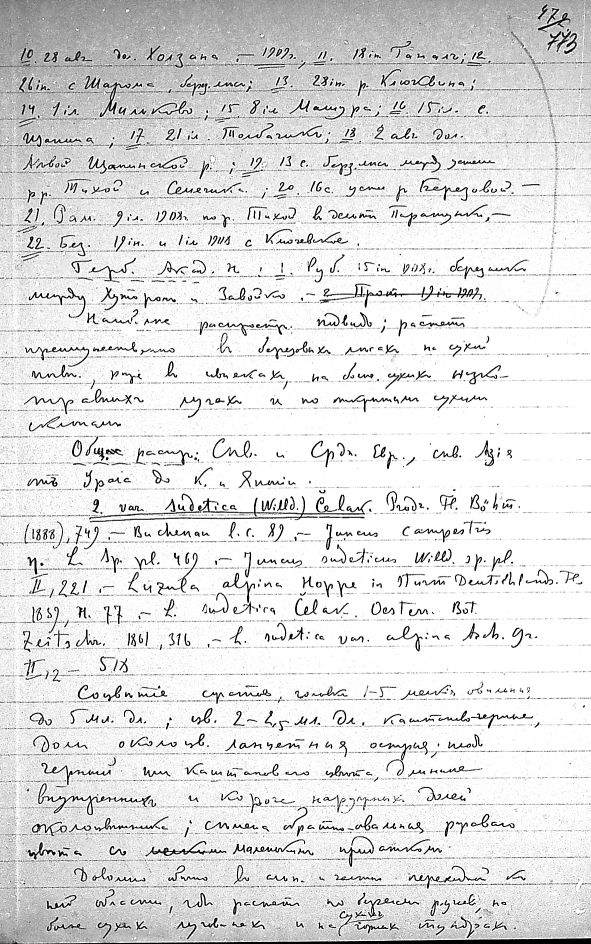 472
773
10. 28 авг. дол. Холзана. — 1909г., 11. 18 iн. Ганалы; 12.
26 iн. с. Шарома, березняки; 13. 28 iн. р. Ключевка;
14. 1 iл. Мильково; 15. 8 iл. Машура; 16. 15 iл. с.
Щапина; 17. 21 iл. Толбачикъ; 18. 2 авг. дол.
Новой Щапинской р.; 19. 13 с. березняки между устьями
р.р. Тихой и Семячика; 20. 16 с. устье р. Березовой. —
21. Рам. 9 iл. 1908 по р. Тихой в долине Паратунки, —
22. Без. 19 iн. и 1 iл. 1908 с. Ключевское.
Герб. Акад. Н.: 1. Руб. 15 iн. 1908г. березняки
между Хуторомъ и Завойко. — 2. Прот. 19 iн. 1909.
Наиболѣе распростр. подвидъ; растетъ
преимущественно въ березовыхъ лѣсахъ на сухой
почвѣ, рѣже въ ивнякахъ, на болѣе сухихъ низко-
травныхъ лугахъ и по открытымъ сухимъ
склонамъ
Общее распр.: Сѣв. и Средн. Евр., сѣв. Азія
отъ Урала до К. и Японiи.
2. var. sudetica (Willd.) Čelak. Prodr. Fl. Böhm.
(1888), 749. — Buchenau l. c. 89. — Juncus campestris
η. L. Sp. pl. 469. — Juncus sudeticus Willd. sp. pl.
II, 221. — Luzula alpina Hoppe in Sturm Deutschlands Fl.
1839, H. 77. — L. sudetica Čelak. Oesterr. Bot.
Zeitschr. 1861, 316. — L. sudetica var. alpina Asch. Gr.
II, 2 — 518
Соцвѣтiе сжатое, головки 1-5 мелкiя овальныя
до 5 мл. дл.; цв. 2-2,5 мл. дл. каштаново-черные,
доли околоцв. ланцетныя острыя; плодъ
черный или каштановаго цвѣта, длиннѣе
внутреннихъ и короче наружныхъ долей
околоцвѣтника; сѣмена обратно-овальныя ржаваго
цвѣта съ мелкимъ маленькимъ придаткомъ
Довольно обычно въ альп. и части переходной къ
ней области, гдѣ растетъ по берегамъ ручьевъ, на
болѣе сухихъ луговинахъ и на сухихъ горныхъ тундрахъ.